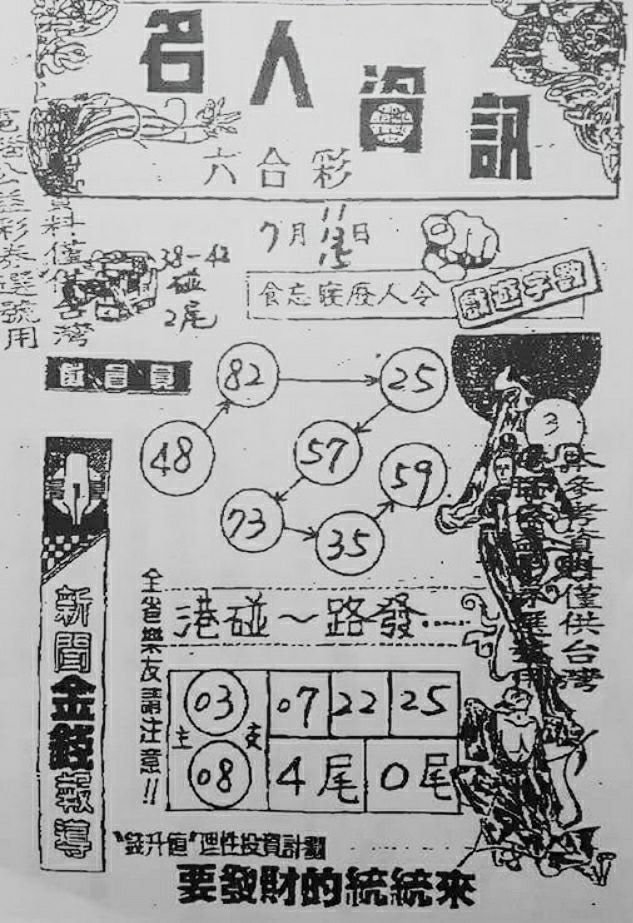 名人資訊
六合彩
7月
11
13日
15
38-42
碰
2尾
食忘寢廢人令
獻證字數
僅會員
82
25
48
57
59
73
35
3
本參考資料僅供台灣
電腦公益彩券選號用
新聞金錢報導
全省樂友請注意!!
港碰～路發.....
主
03
08
支
07 22 25
4尾 0尾
"錢升值"理性投資計劃
要發財的統統來